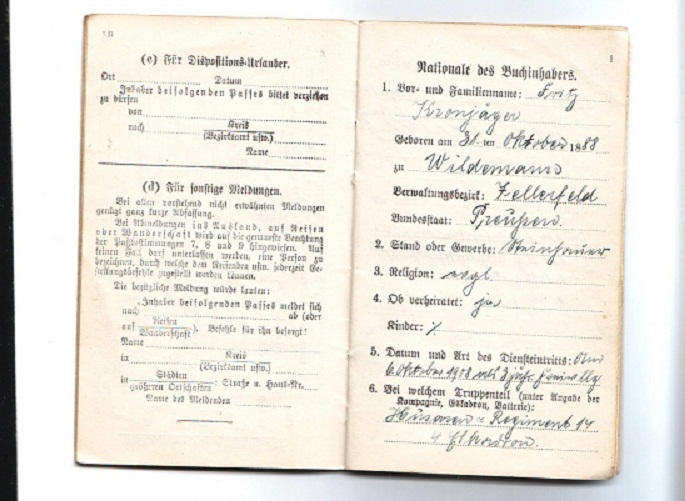 VII
(c) Für Dispositions-Urlauber.
Ort Datum
Inhaber beifolgenden Passes bittet verziehen
zu dürfen
von
nach Kreis
(Bezirksamt usw.)
Name
(d) Für sonstige Meldungen.
Bei allen vorstehend nicht erwähnten Meldungen
genügt ganz kurze Abfassung.
Bei Abmeldungen ins Ausland, auf Reisen
oder Wanderschaft wird auf die genaueste Beachtung
der Paßbestimmungen 7, 8 und 9 hingewiesen. Auf
keinen Fall darf unterlassen werden, eine Person zu
bezeichnen, durch welche dem Reisenden usw. jederzeit Ge-
stellungsbefehle zugestellt werden können.
Die bezügliche Meldung würde lauten:
„Inhaber beifolgenden Passes meldet sich
nach ab (oder
auf Reisen
Wanderschaft). Befehle für ihn besorgt:
Name
in Kreis
(Bezirksamt usw.)
in Städten
größeren Ortschaften: Straße u. Haus-Nr.
Name des Meldenden
Nationale des Buchinhabers.
1. Vor- und Familienname: Fritz
Kronjäger
Geboren am 31. ten Oktober 1888
zu Wildemann
Verwaltungsbezirk: Zellerfeld
Bundesstaat: Preußen.
2. Stand oder Gewerbe: Steinhauer
3. Religion: evgl
4. Ob verheiratet: ja
Kinder: %
5. Datum und Art des Diensteintritts: Am
6 Oktober 1908 als 3 jähr. Freiwllg
6. Bei welchem Truppenteil (unter Angabe der
Kompagnie, Eskadron, Batterie):
Husaren - Regiment 14
4 Eskadron.